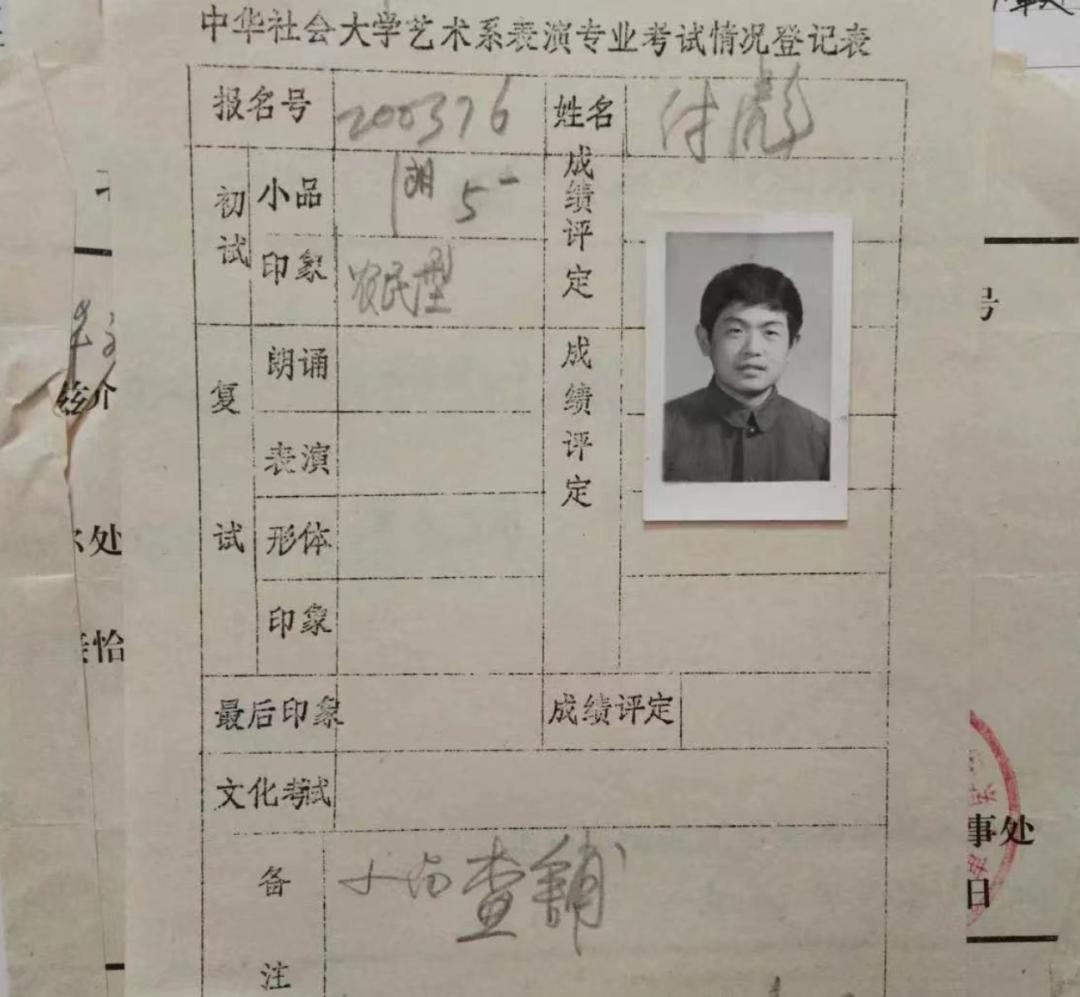 中华社会大学艺术系表演专业考试情况登记表
报名号 200376 姓名 付彪
初试 小品 朗 5- 成绩评定
印象 农民型
复试 朗诵 成绩评定
表演
形体
印象
最后印象 成绩评定
文化考试
备注
查铺
号
兹介
处
怡
事处
日